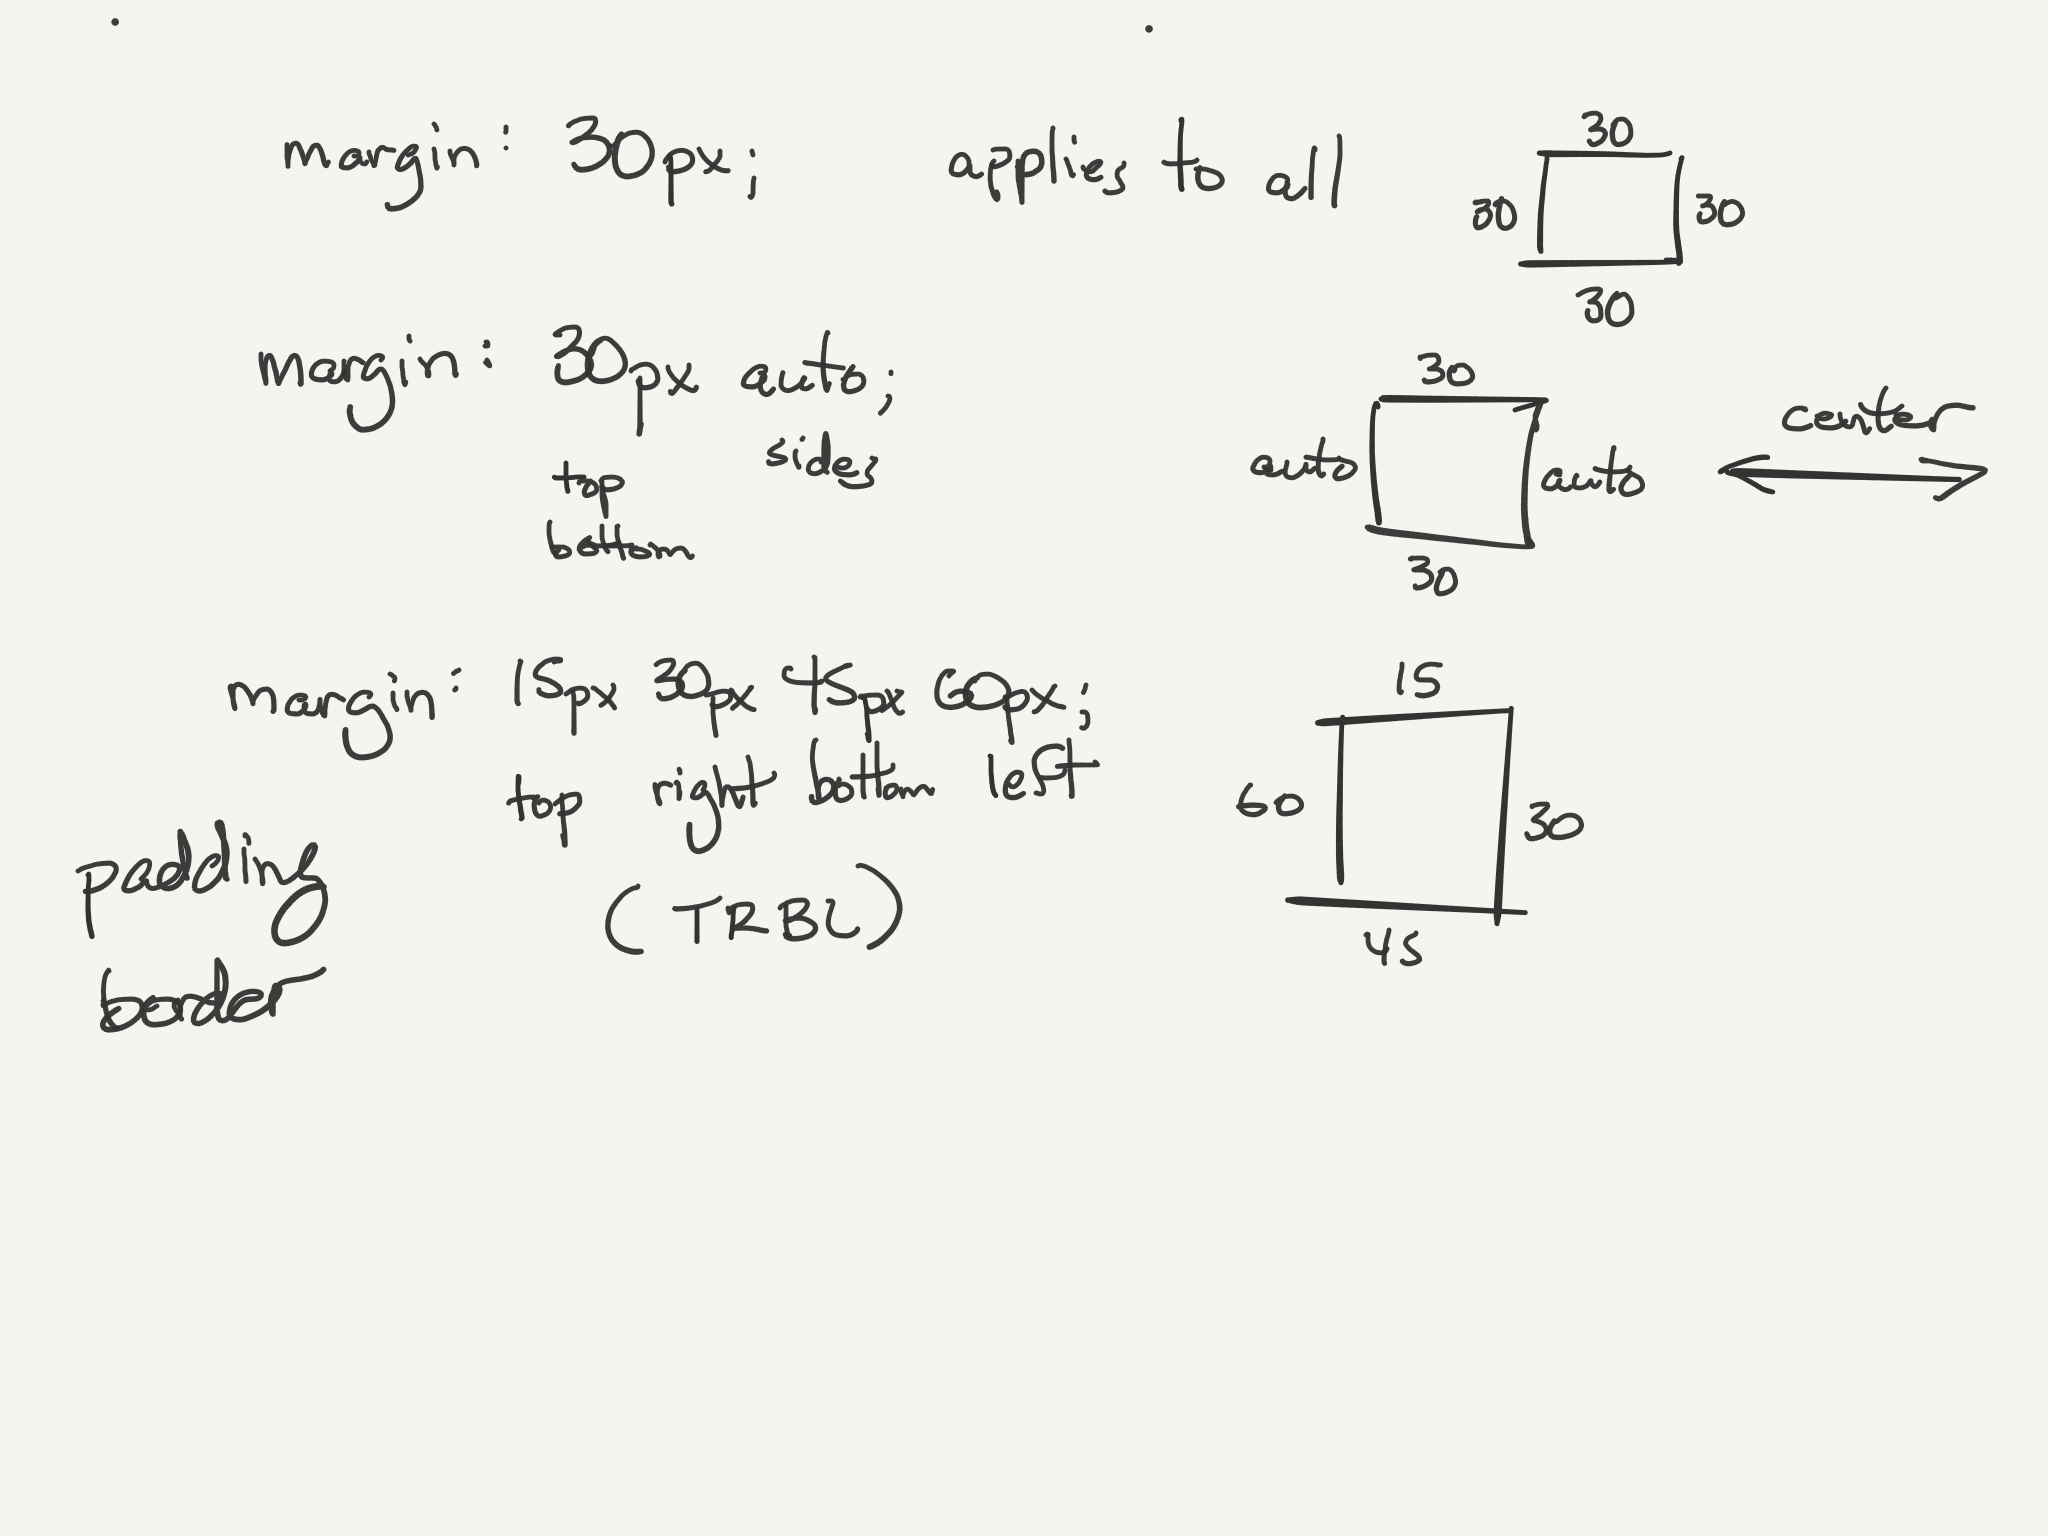 margin: 30px; applies to all
30
30 30
30
margin: 30px auto;
top sides
bottom
30
auto auto
30
center
margin: 15px 30px 45px 60px;
top right bottom left
(TRBL)
15
60 30
45
padding
border